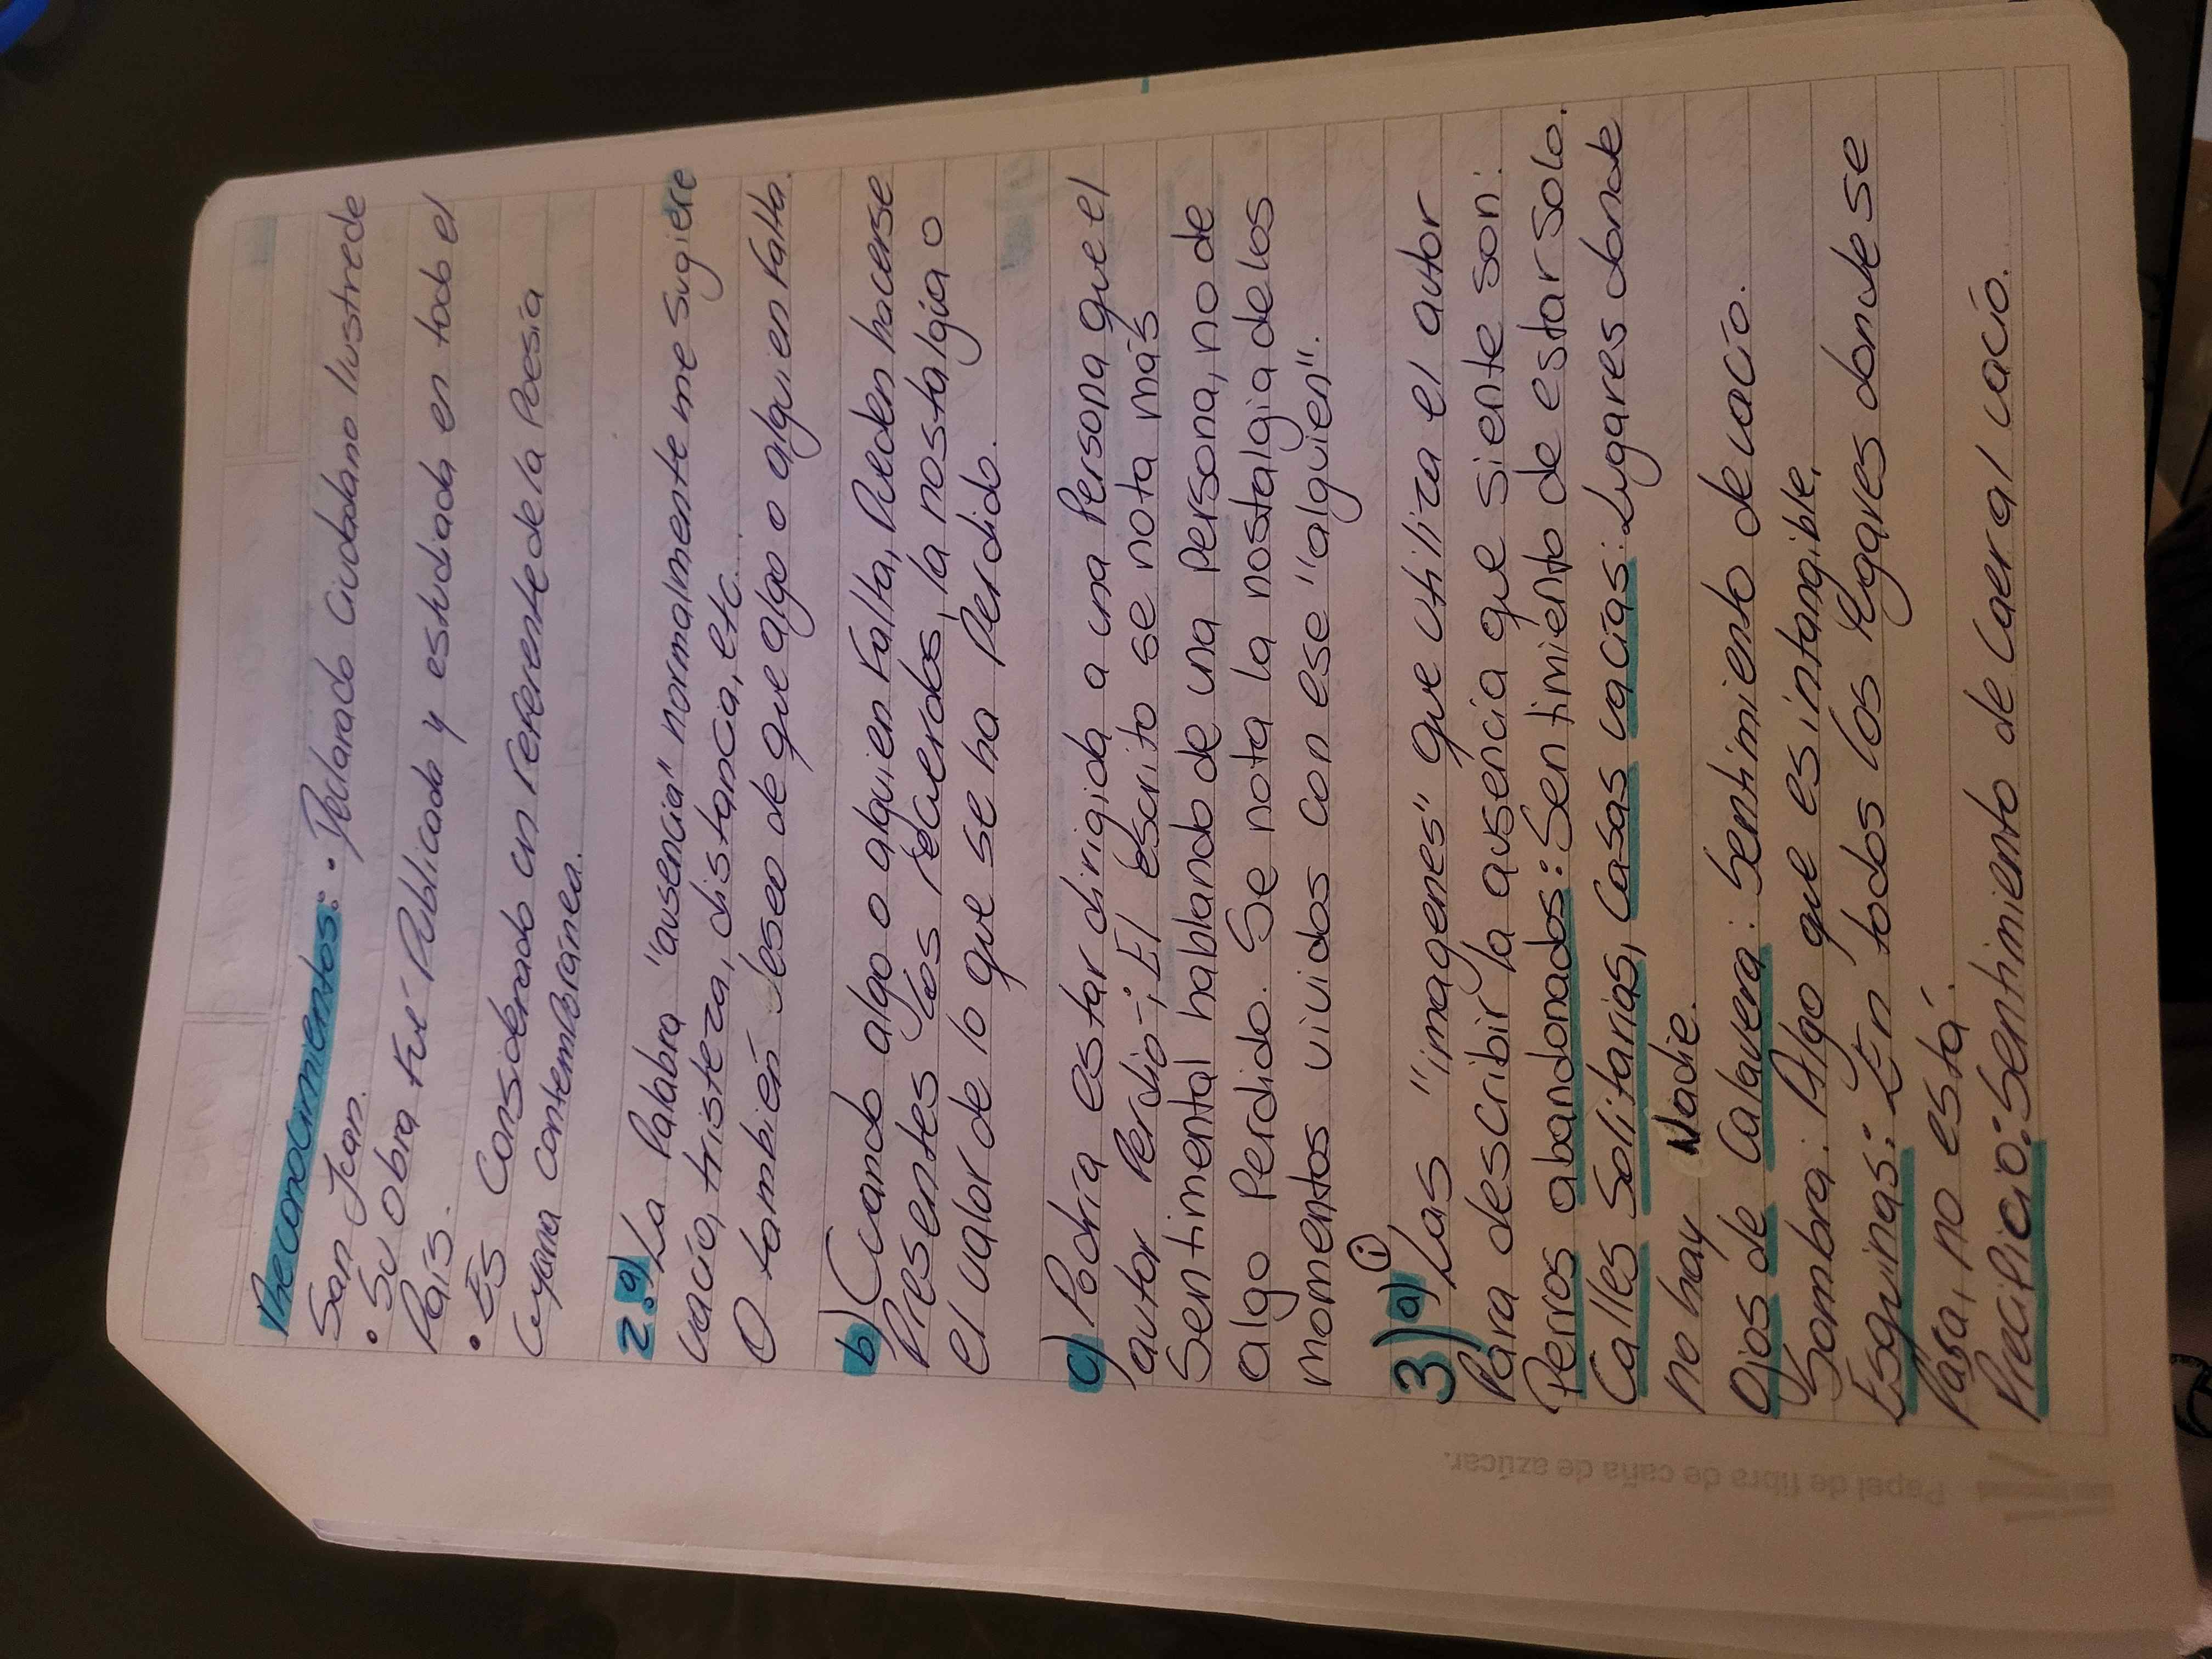 Reconocimientos: • Declarado Ciudadano Ilustre de
San Juan.
• Su obra fué Publicada y estudiada en todo el
País.
• Es considerado un referente de la Poesía
Cuyana contemporánea.
2.a) La Palabra "ausencia" normalmente me sugiere
vacío, tristeza, distancia, etc...
O también deseo de que algo o alguien falta.
b) Cuando algo o alguien falta, Pueden hacerse
Presentes los recuerdos, la nostalgia o
el valor de lo que se ha Perdido.
c) Podría estar dirigida a una Persona que el
autor Perdió-; El escrito se nota más
Sentimental hablando de una Persona, no de
algo Perdido. Se nota la nostalgia de los
momentos vividos con ese "alguien".
3) a) i Las "imagenes" que utiliza el autor
Para describir la ausencia que siente son:
Perros abandonados: Sentimiento de estar solo.
Calles Solitarias, Casas vacías: Lugares donde
no hay Nadie.
Ojos de Calavera: Sentimiento de vacío.
Sombra: Algo que es intangible.
Esquinas: En todos los lugares donde se
Pasa, no está.
Precipicio: Sentimiento de caer al vacío.
Papel de fibra de caña de azúcar.